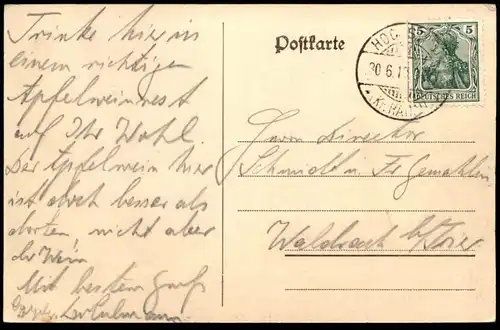 Trinke hier in
einem richtigen
Apfelweinnest
auf Ihr Wohl.
Der Apfelwein hier
ist doch besser als
dorten nicht aber
der Wein
Mit bestem Gruß
Postkarte
30.6.1
5 5
DEUTSCHES REICH
Herrn Director
Schmidt u. Fr Gemahlin
Waldrach b/Trier